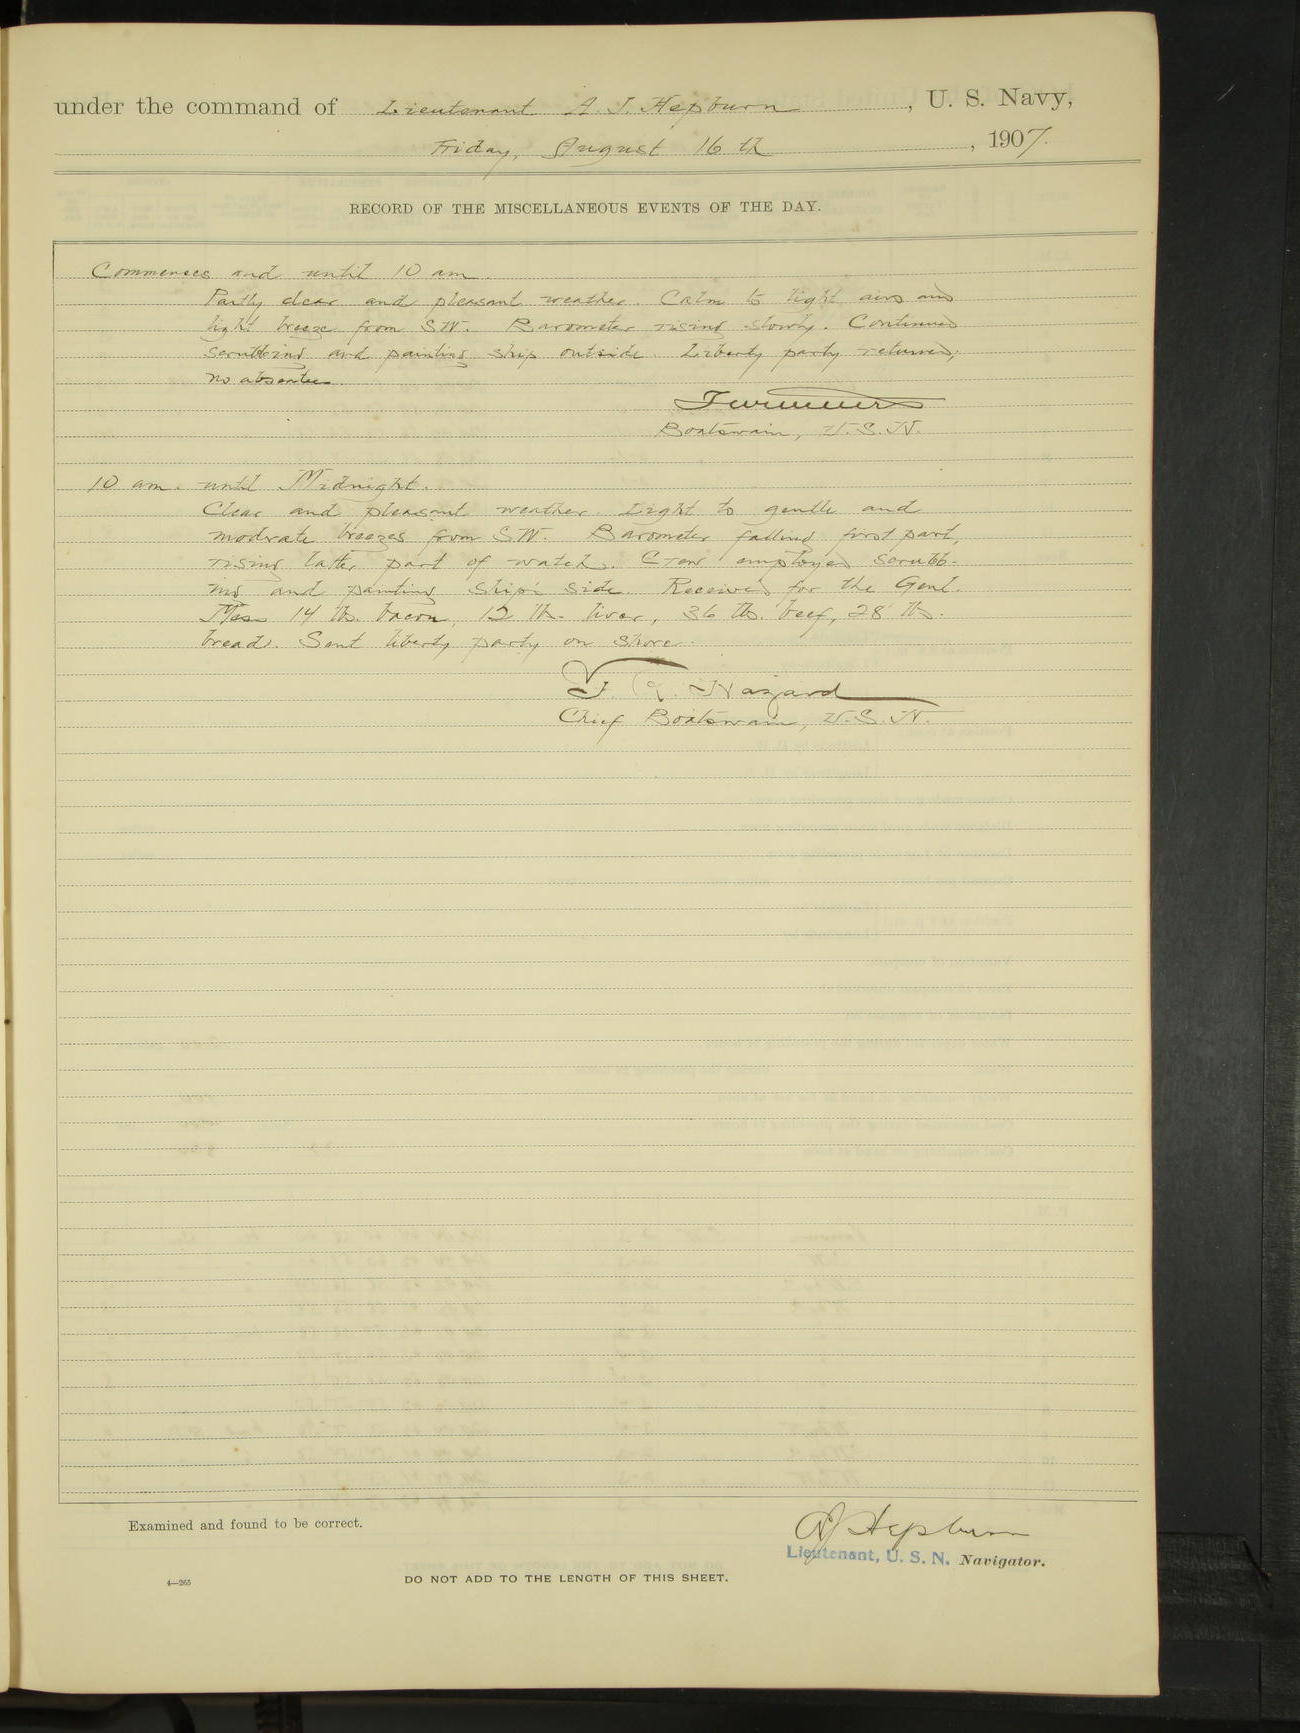 under the command of Lieutenant A. J. Hepburn, U. S. Navy,
Friday, August 16th, 1907.
RECORD OF THE MISCELLANEOUS EVENTS OF THE DAY.
Commences and until 10 am.
Partly clear and pleasant weather. Calm to light airs and
light breeze from SW. Barometer rising slowly. Continued
scrubbing and painting ship outside. Liberty party returned;
no absentees.
Boatswain, U.S.N.
10 am. until Midnight.
Clear and pleasant weather. Light to gentle and
moderate breezes from SW. Barometer falling first part,
rising latter part of watch. Crew employed scrubb-
ing and painting ship's side. Received for the Genl.
Mess 14 lbs. bacon, 12 lbs. liver, 36 lbs. beef, 28 lbs.
bread. Sent liberty party on shore.
Hazard
Chief Boatswain, U.S.N.
Examined and found to be correct.
AJ Hepburn
Lieutenant, U. S. N. Navigator.
4—265
DO NOT ADD TO THE LENGTH OF THIS SHEET.